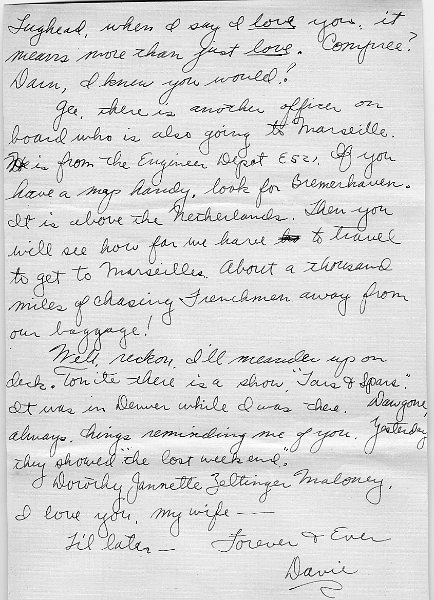 Lughead, when I say I love you, it
means more than just love. Compree?
Darn, I knew you would!
Gee, there is another officer on
board who is also going to Marseille.
He is from the Engineer Depot E521. If you
have a map handy, look for Bremerhaven.
It is above the Netherlands. Then you
will see how far we have to travel
to get to Marseilles. About a thousand
miles of chasing Frenchmen away from
our baggage!
Well, reckon, I'll meander up on
deck. Tonite there is a show, "Tars & Spars."
It was in Denver while I was there. Dawgone,
always, things reminding me of you. Yesterday
they showed "the lost weekend."
Dorothy Jannette Zeltinger Maloney,
I love you, my wife - - -
Til later — Forever & Ever
Davie